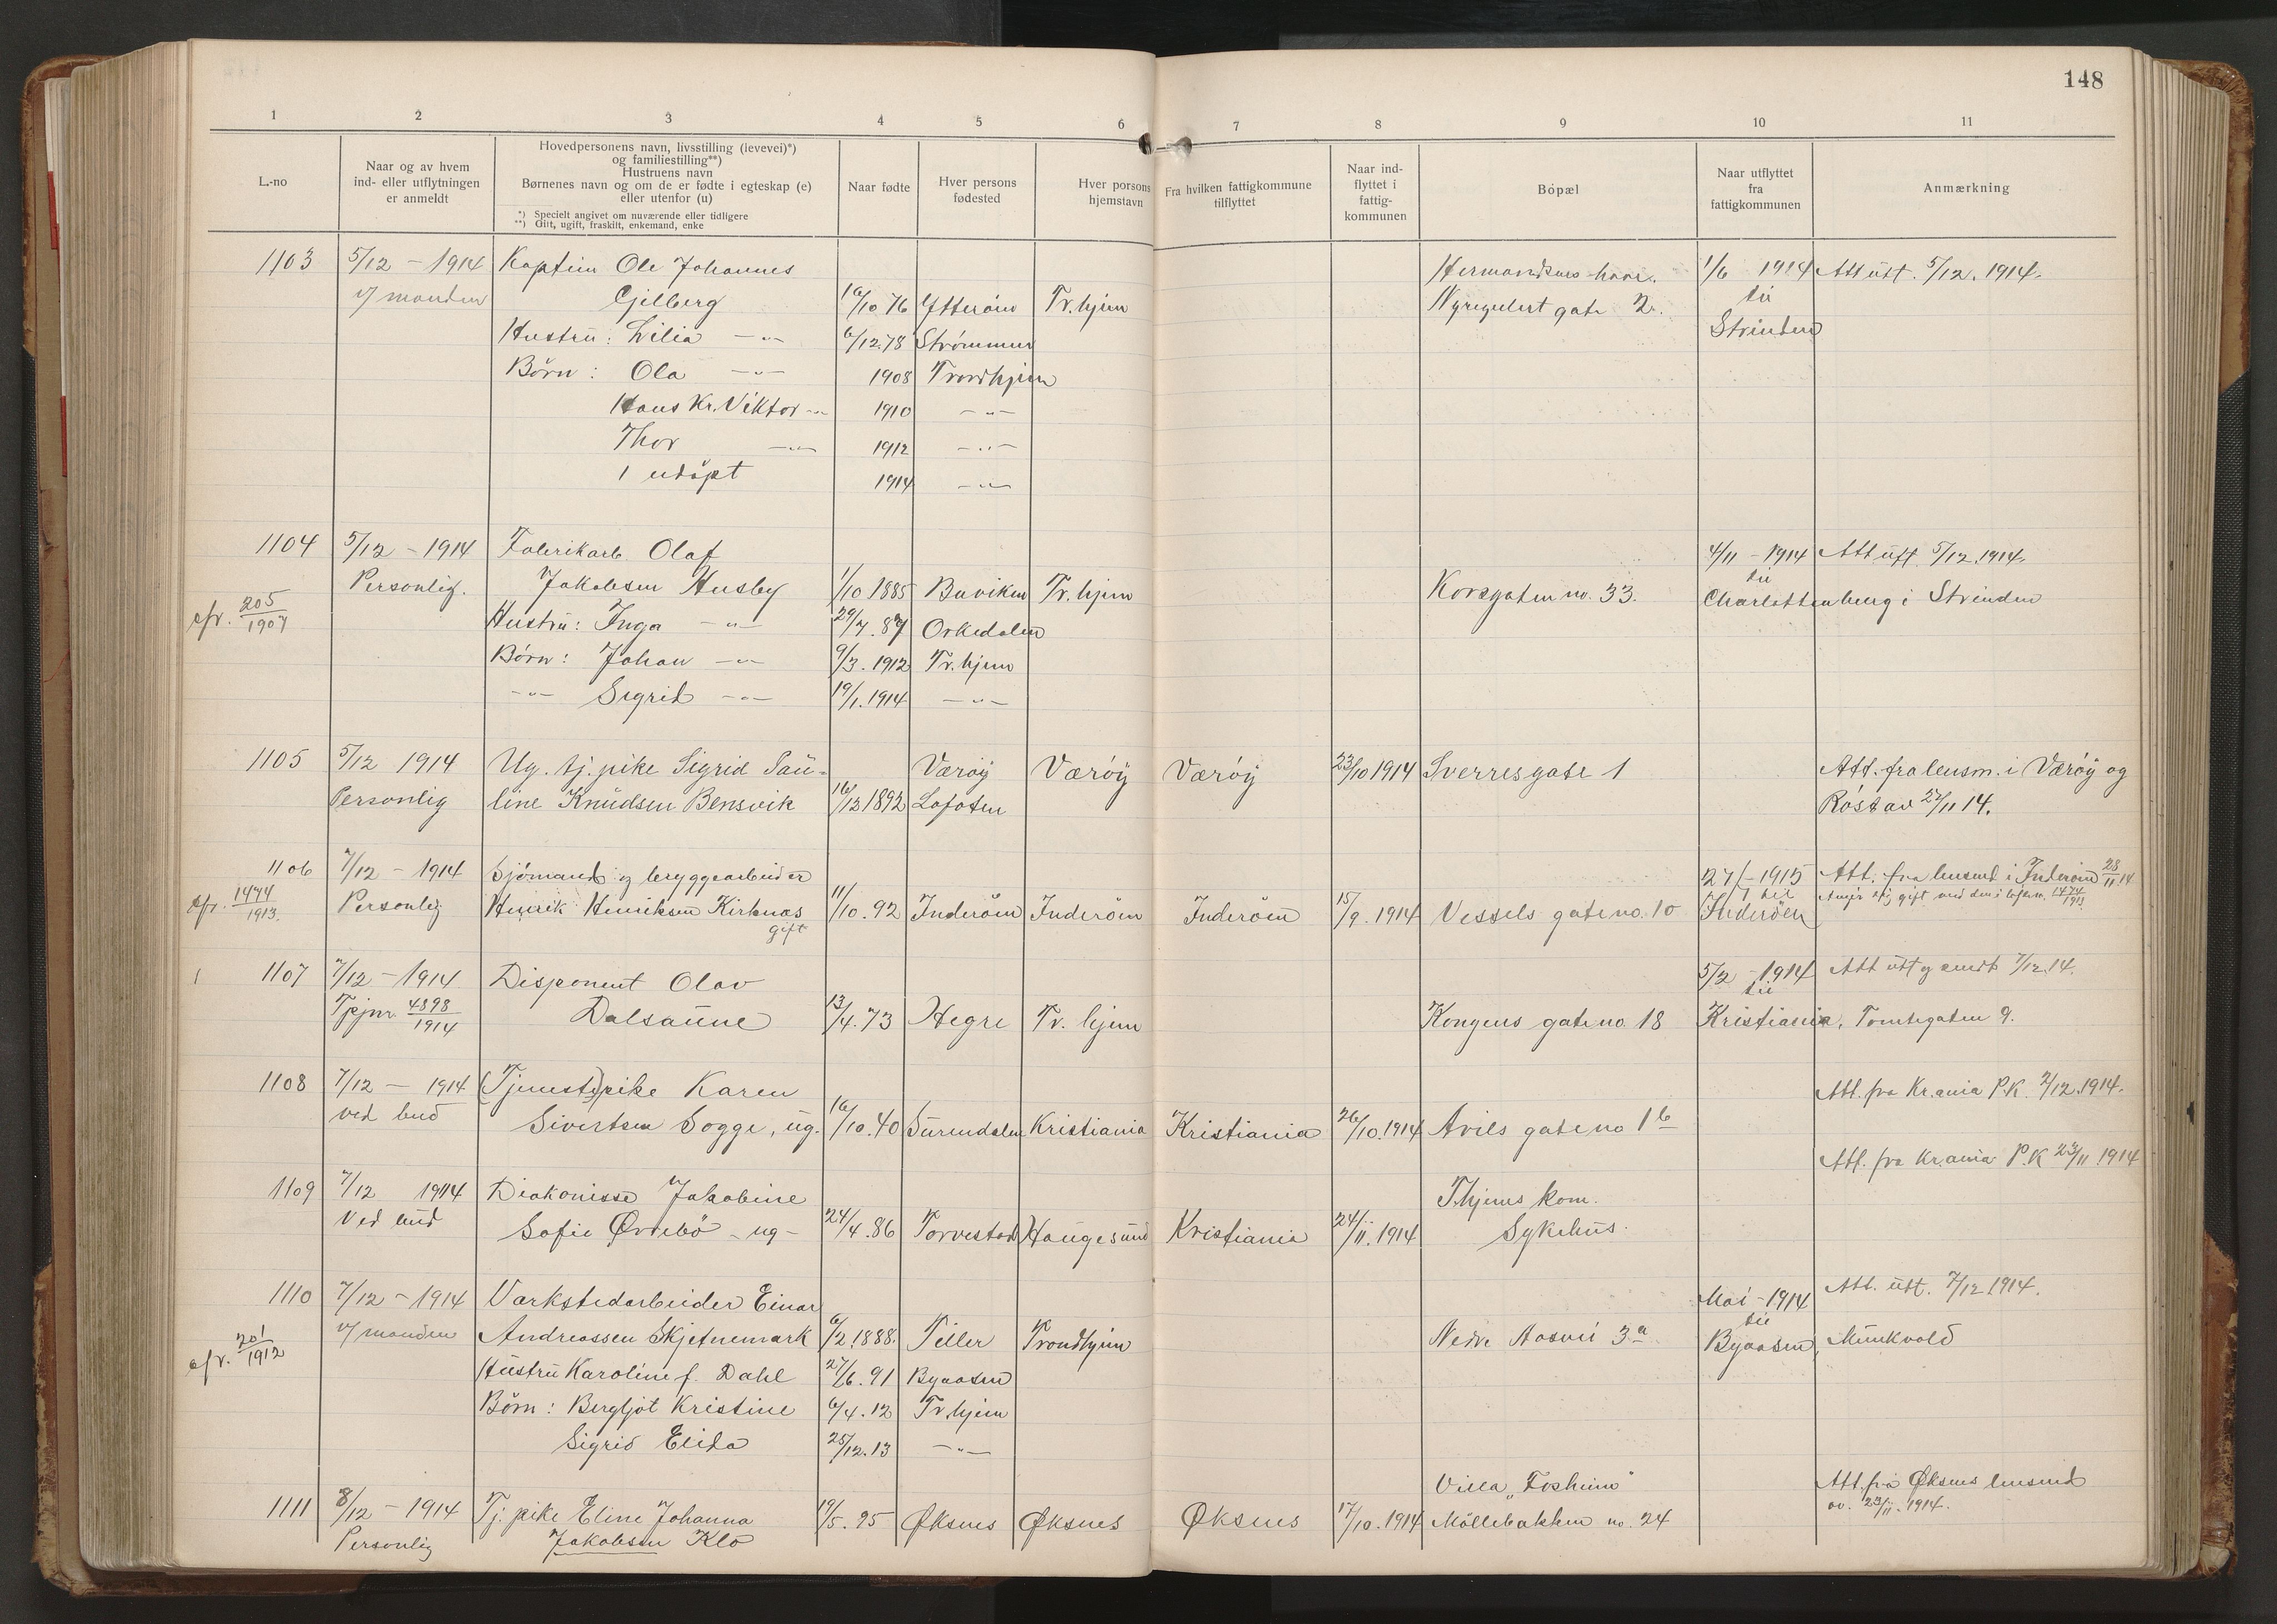 148
1 2 3 4 5 6 7 8 9 10 11
L.-no
Naar og av hvem
ind- eller utflytningen
er anmeldt
Hovedpersonens navn, livsstilling (levevei)*)
og familiestilling**)
Hustruens navn
Børnenes navn og om de er fødte i egteskap (e)
eller utenfor (u)
*) Specielt angivet om nuværende eller tidligere
**) Gift, ugift, fraskilt, enkemand, enke
Naar fødte
Hver persons
fødested
Hver porsons
hjemstavn
Fra hvilken fattigkommune
tilflyttet
Naar ind-
flyttet i
fattig-
kommunen
Bopæl
Naar utflyttet
fra
fattigkommunen
Anmærkning
1103 5/12 - 1914 Kaptein Ole Johannes Hermandsens havn. 1/6 1914 Att utst. 5/12. 1914.
v/ manden Gjelberg 16/10 76 Ytterøen Tr.hjem Nyregulert gate 2. til
Hustru: Lilia -"- 6/12.78 Strømmen Strinden
Børn: Ola -"- 1908 Trondhjem
Hans Kr. Viktor -"- 1910 -"-
Thor -"- 1912 -"-
1 udöpt 1914 -"-
1104 5/12 - 1914 Fabrikarb. Olaf 4/11 - 1914 Att utst 5/12.1914.
Personlig. Jakobsen Husby 1/10 1885 Buviken Tr.hjem Korsgaten no. 33. til Charlottenberg i Strinden
cfr. 205/1907 Hustru: Inga -"- 29/7.87 Orkedalen
Børn: Johan -"- 9/3.1912 Tr.hjem
-"- Sigrid -"- 19/1.1914 -"-
1105 5/12 1914 Ug. tj. pike Sigrid Pau- Væröy Væröy Væröy 23/10 1914 Sverresgate 1 Att. fra lensm. i Væröy og
Personlig line Knudsen Bensvik 16/12 1892 Lofoten Röst av 27/11 14.
1106 7/12 - 1914 Sjömand og bryggearbeider 1915 Att. fra lensmd i Inderöen 28/11 14
cfr. 1474/1913. Personlig Henrik Henriksen Kirknes 11/10.92 Inderöen Inderöen Inderöen 15/9.1914 Vessels gate no. 10 til Inderöen gift med den i 1474/1913
gift
1107 7/12 - 1914 Disponent Olav 5/2 - 1914 Att utst og sendt 7/12.14.
4898/1914 Dalsaune 13/4.73 Hegre Tr. hjem Kongens gate no. 18 til Kristiania, Tomtegaten 9.
1108 7/12 - 1914 (Tjeneste)pike Karen Att. fra Kr.ania P.K. 2/12.1914.
ved bud Sivertsen Sogge, ug. 16/10.40 Surendalen Kristiania Kristiania 26/10.1914 Arils gate no 1b
Att. fra Kr.ania P.K 23/11.1914
1109 7/12 1914 Diakonisse Jakobine T.hjems kom.
Ved bud Sofie Övrebö - ug - 24/4.86 Torvestad Haugesund Kristiania 24/11.1914 Sykehus.
1110 7/12 - 1914 Verkstedarbeider Einar Mai - 1914 Att. utst. 7/12 1914.
cfr. 201/1912 v/ manden Andreassen Skjetnemark 6/2.1888. Tiller Trondhjem Nedre Aasvei 3a til Byaasen, Munkvold
Hustru Karoline f. Dahl 27/6.91 Byaasen
Børn: Bergljot Kristine 6/4.12 Tr.hjem
Sigrid Elida 25/12.13 -"-
Villa "Fosheim" Att. fra Øksnes lensmd
1111 8/12 - 1914 Tj. pike Eline Johanna 19/5.95 Øksnes Øksnes Øksnes 17/10.1914 Möllebakken no. 24 av. 23/11.1914.
Personlig Jakobsen Klo